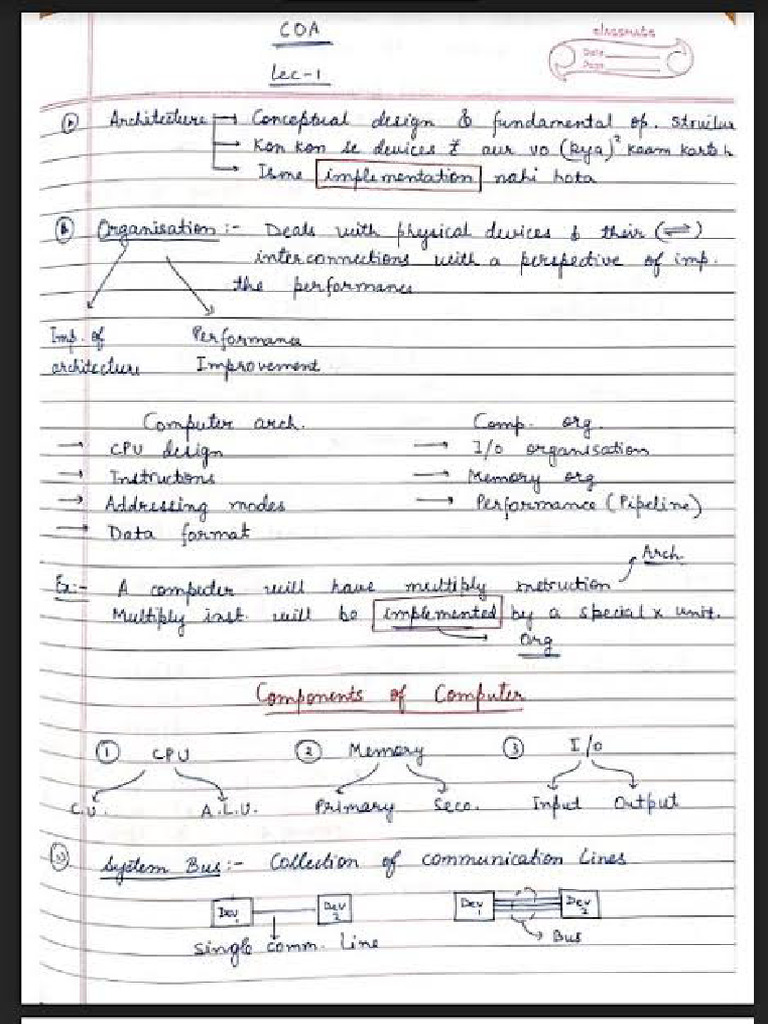 COA
classmate
Date
Page
Lec-1
Architecture → Conceptual design & fundamental op. structur
→ Kon kon se devices aur vo (kya)² kaam karta h
→ Isme implementation nahi hota
Organisation :- Deals with physical devices & their (⇌)
interconnections with a perspective of imp.
the performance
Imp. of Performance
architecture Improvement
Computer arch. Comp. org.
→ CPU design → I/O organisation
→ Instructions → Memory org
→ Addressing modes → Performance (Pipeline)
→ Data format
Arch
Ex:- A computer will have multiply instruction
Multiply inst. will be implemented by a special x unit.
Org
Components of Computer
① CPU ② Memory ③ I/O
C.U. A.L.U. Primary Seco. Input Output
System Bus :- Collection of communication lines
Dev 1 Dev 2 Dev 1 Dev 2
single comm. line Bus